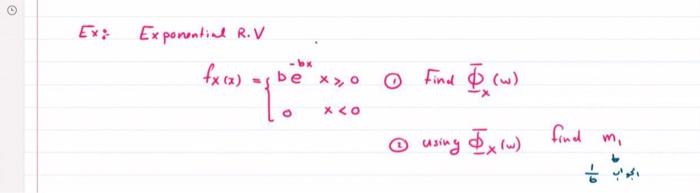 Ex: Exponential R.V
fx(x) = { b e^-bx x ≥ 0 ① Find Φx(ω)
0 x < 0
② using Φx(ω) find m₁
1/b